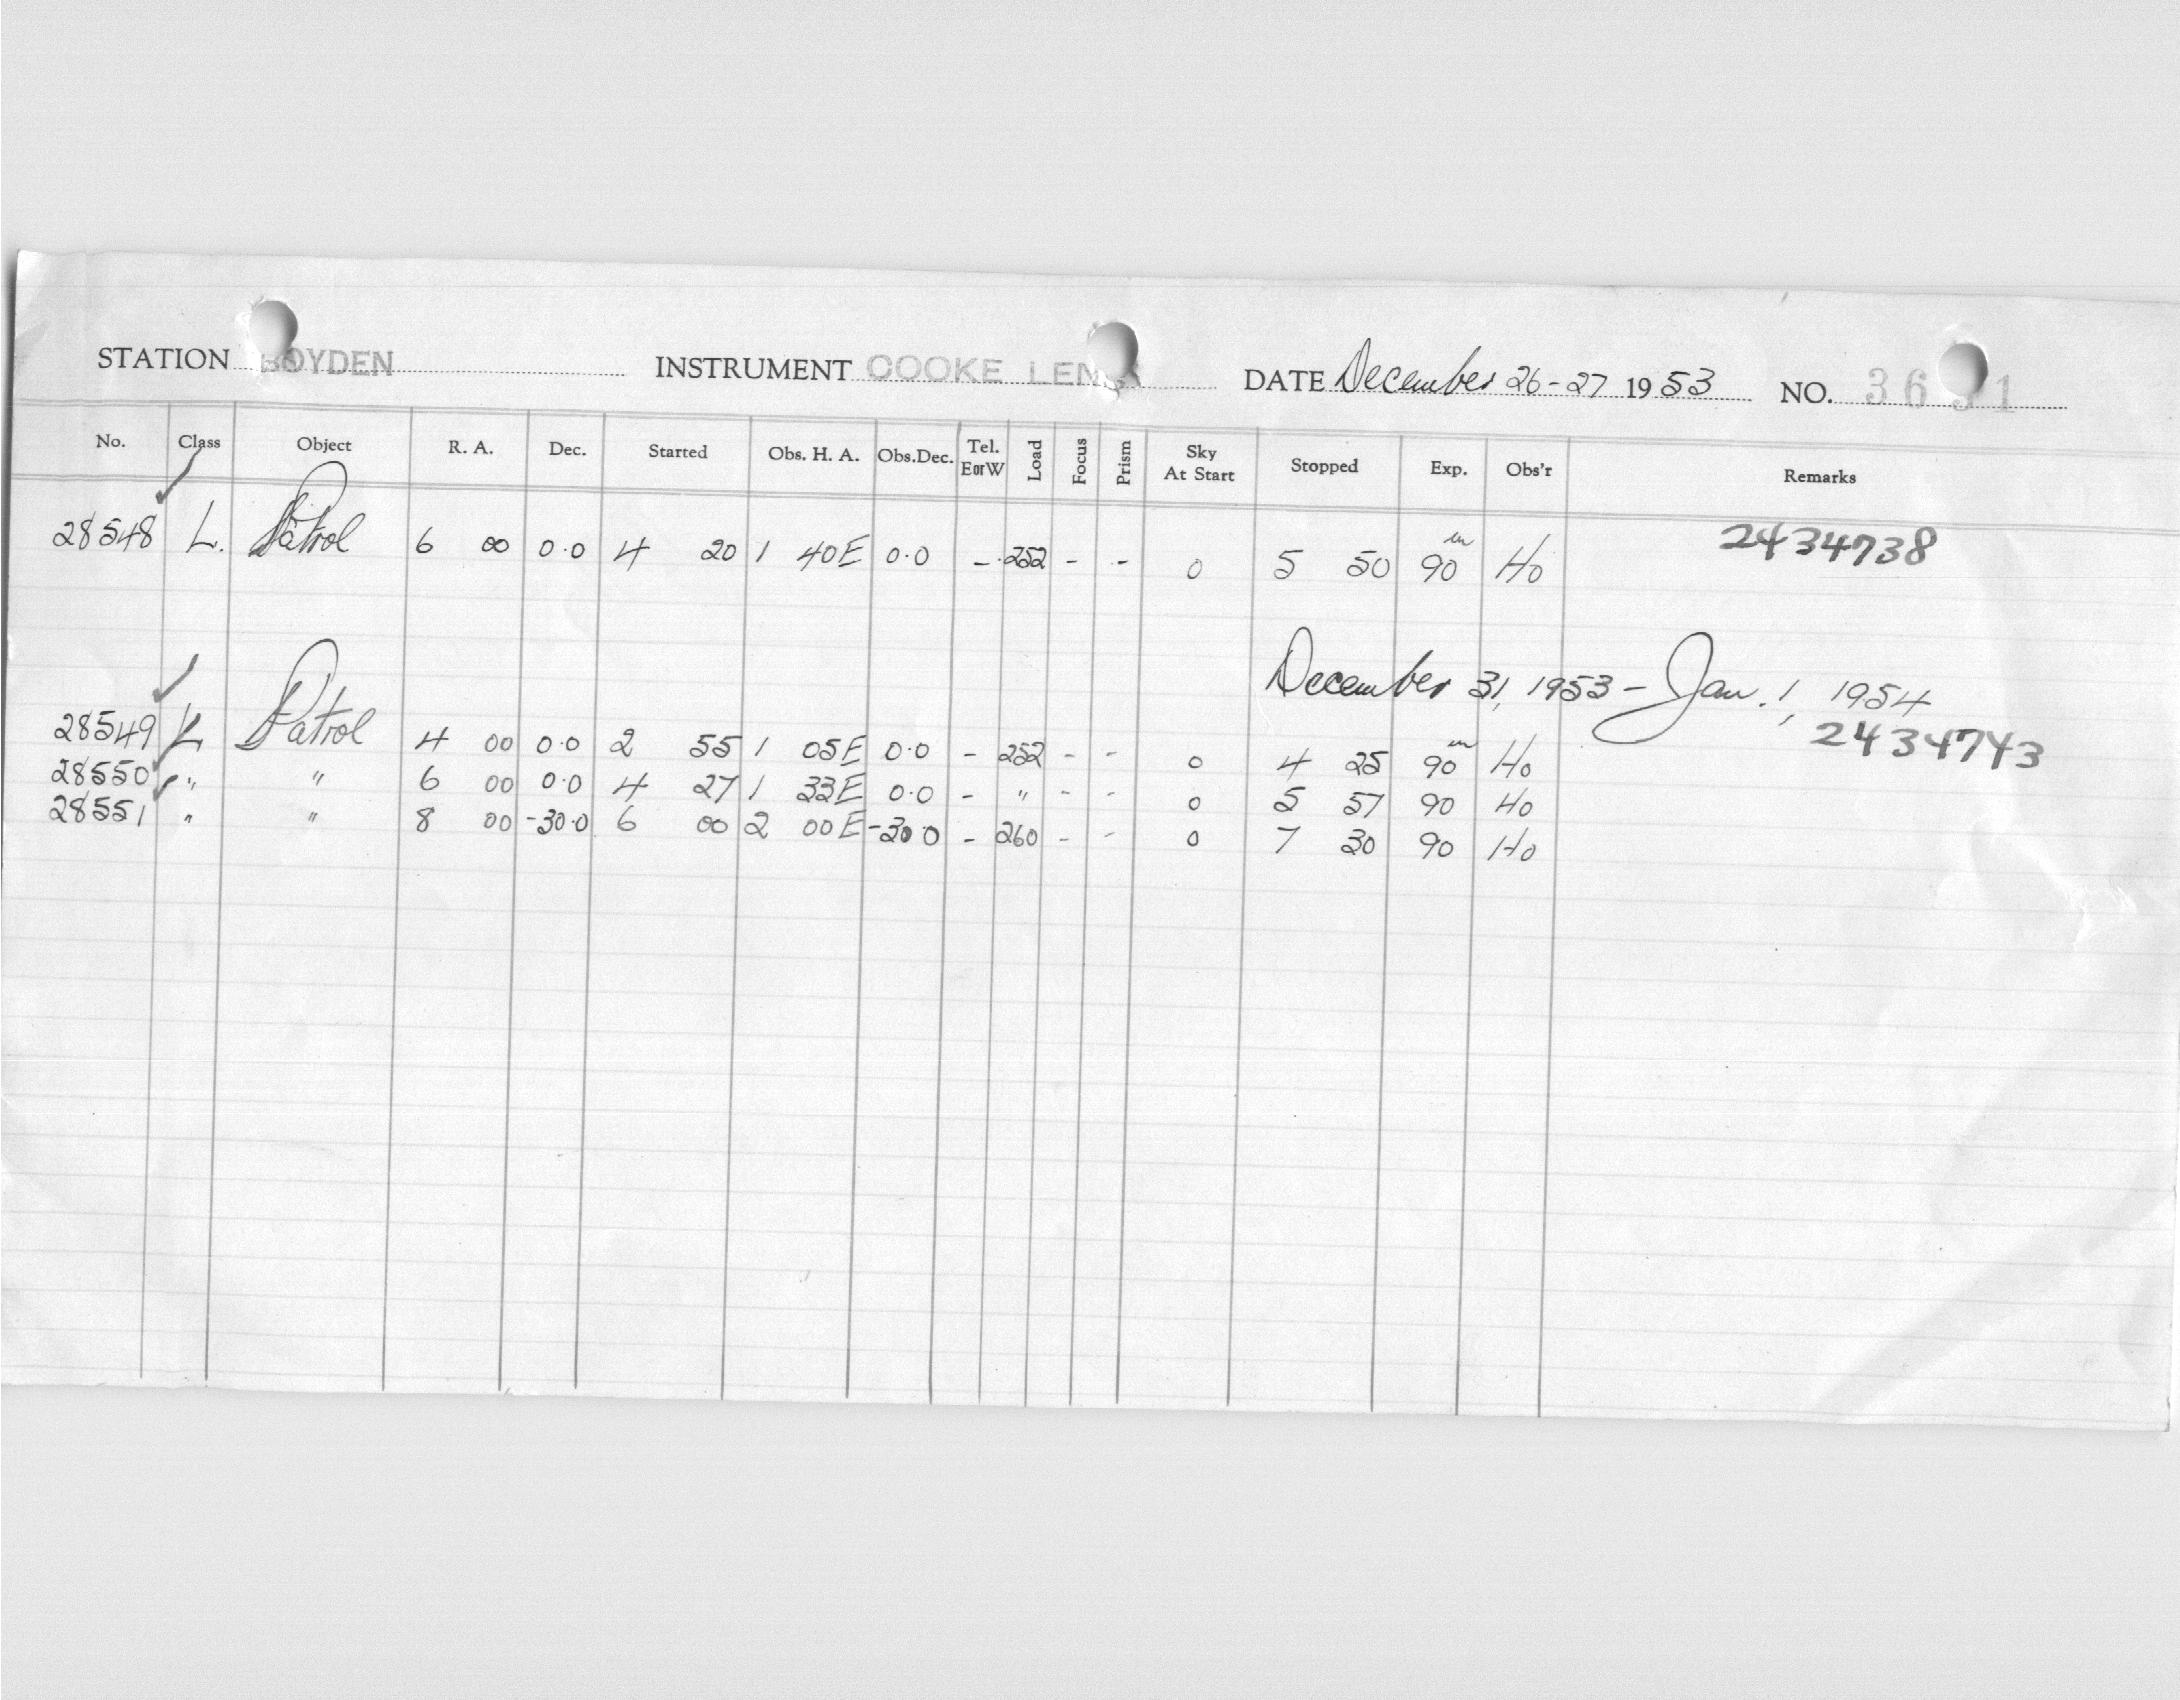 STATION BOYDEN INSTRUMENT COOKE LENS DATE December 26-27 1953 NO. 36 1
No. Class Object R. A. Dec. Started Obs. H. A. Obs.Dec. Tel. E or W Load Focus Prism Sky At Start Stopped Exp. Obs'r Remarks
28548 L. Patrol 6 00 0.0 4 20 1 40E 0.0 - 252 - - 0 5 50 90m Ho 2434738
December 31, 1953 - Jan. 1, 1954
28549 L Patrol 4 00 0.0 2 55 1 05E 0.0 - 252 - - 0 4 25 90m Ho 2434743
28550 " " 6 00 0.0 4 27 1 33E 0.0 - " - - 0 5 57 90 Ho
28551 " " 8 00 -30.0 6 00 2 00E -30.0 - 260 - - 0 7 30 90 Ho